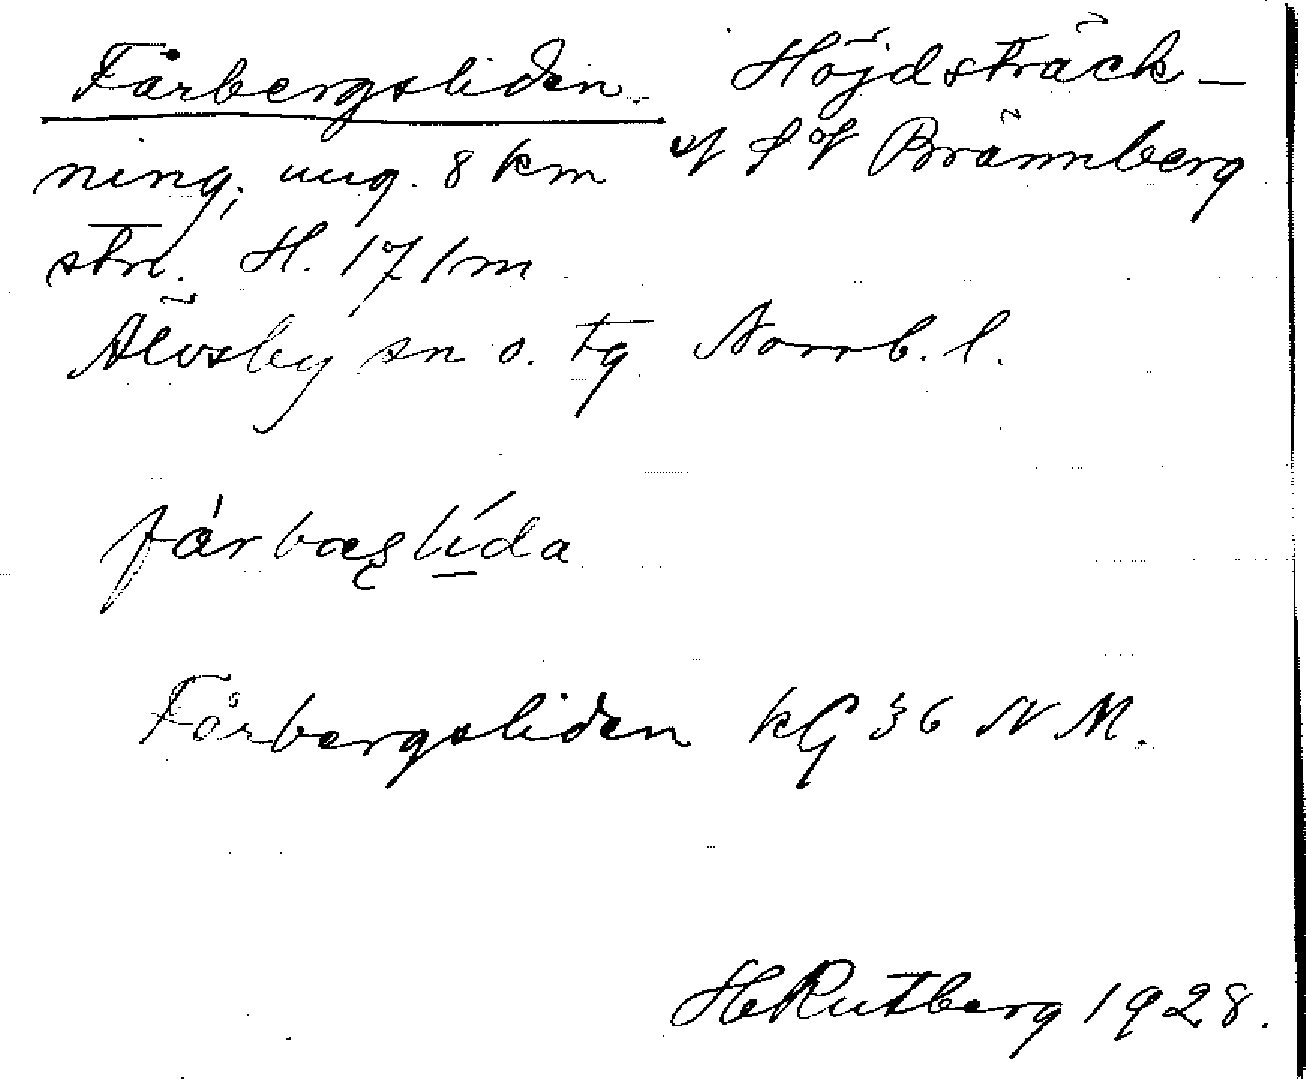 Fårbergsliden. Höjdsträck-
ning, ung. 8 km of S of Brännberg
stn. H. 171 m
Älvsby sn o. tg Norrb. l.
fårbæʂlida
Fårbergsliden kG 36 N M.
H Rutberg 1928.